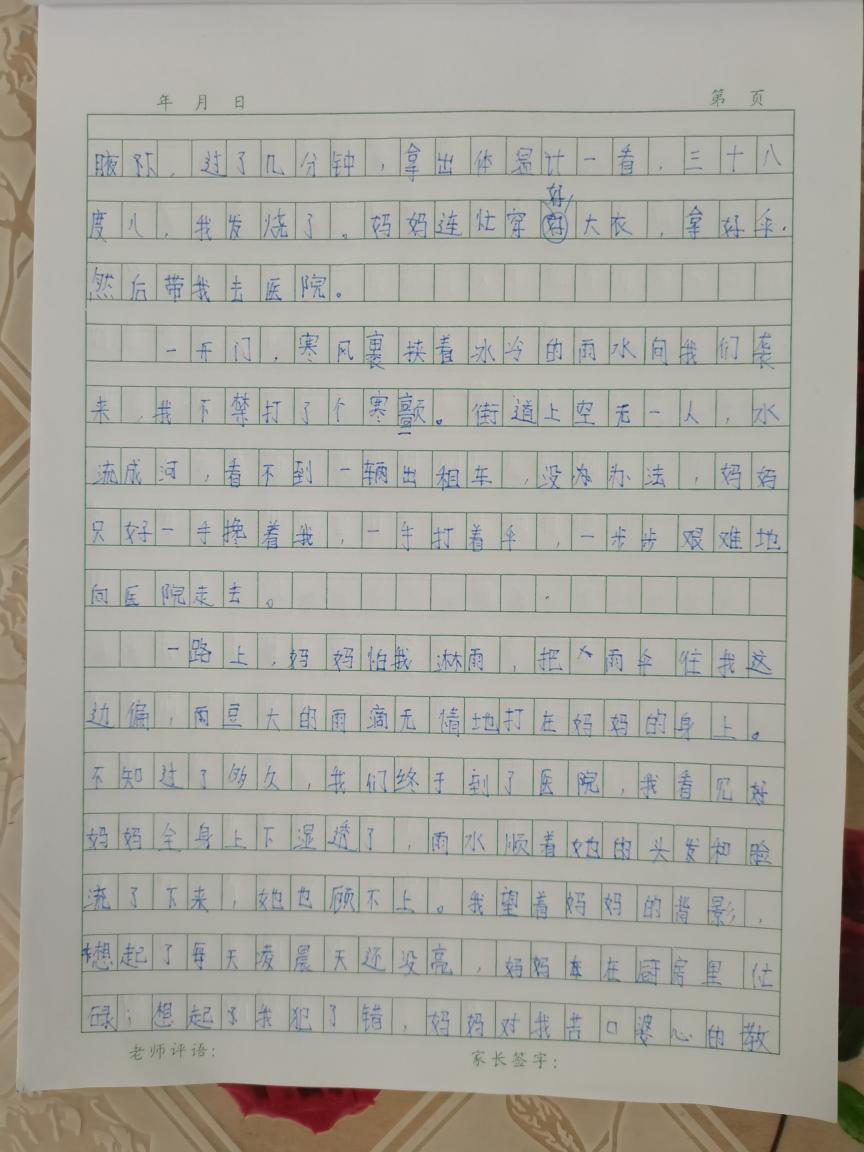 年 月 日 第 页
腋下，过了几分钟，拿出体温计一看，三十八
度八，我发烧了。妈妈连忙穿好大衣，拿好伞，
然后带我去医院。
一开门，寒风裹挟着冰冷的雨水向我们袭
来，我不禁打了个寒颤。街道上空无一人，水
流成河，看不到一辆出租车，没办法，妈妈
只好一手搀着我，一手打着伞，一步步艰难地
向医院走去。
一路上，妈妈怕我淋雨，把雨伞往我这
边偏，而豆大的雨滴无情地打在妈妈的身上。
不知过了多久，我们终于到了医院，我看见
妈妈全身上下湿透了，雨水顺着她的头发和脸
流了下来，她也顾不上。我望着妈妈的背影，
想起了每天凌晨天还没亮，妈妈在厨房里忙
碌；想起了我犯了错，妈妈对我苦口婆心的教
老师评语： 家长签字：